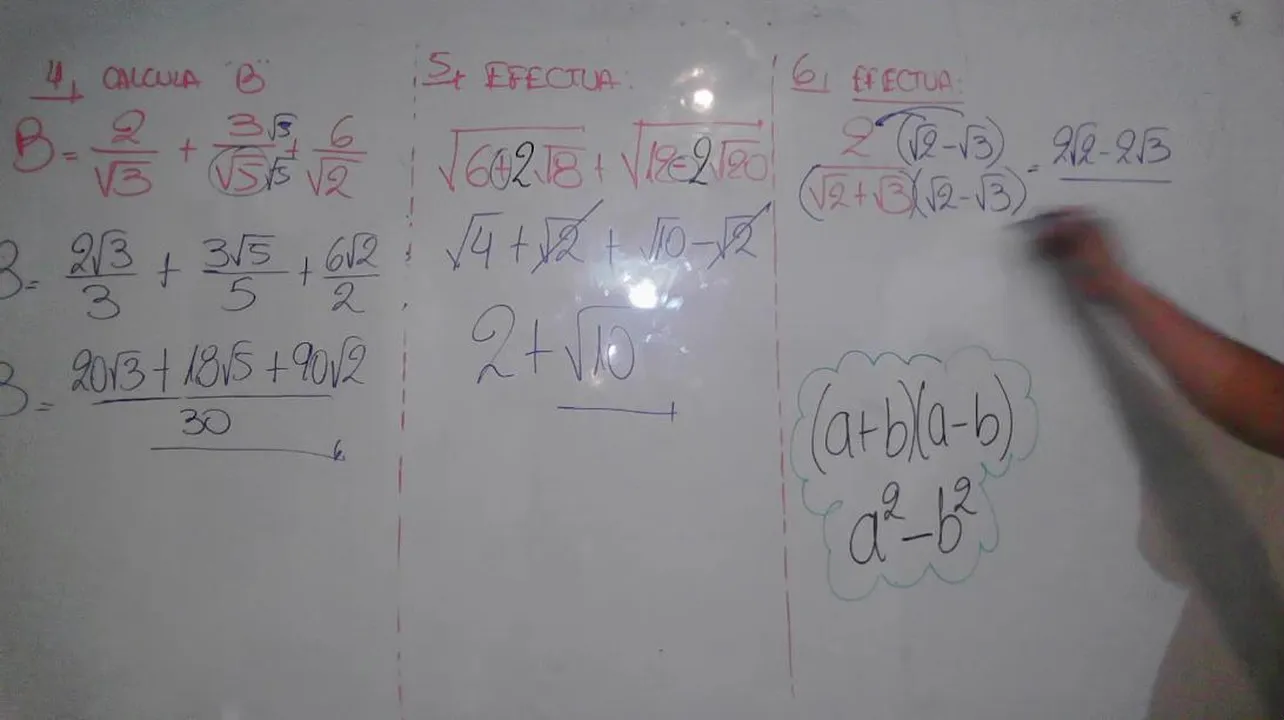 4, CALCULA "B"
B = 2/√3 + 3√5/√5√5 + 6/√2
B = 2√3/3 + 3√5/5 + 6√2/2
B = 20√3 + 18√5 + 90√2/30
5, EFECTUA:
√6+2√8 + √12-2√20
√4 + √2 + √10 - √2
2 + √10
6, EFECTUA:
2(√2-√3)/(√2+√3)(√2-√3) = 2√2-2√3
(a+b)(a-b)
a²-b²